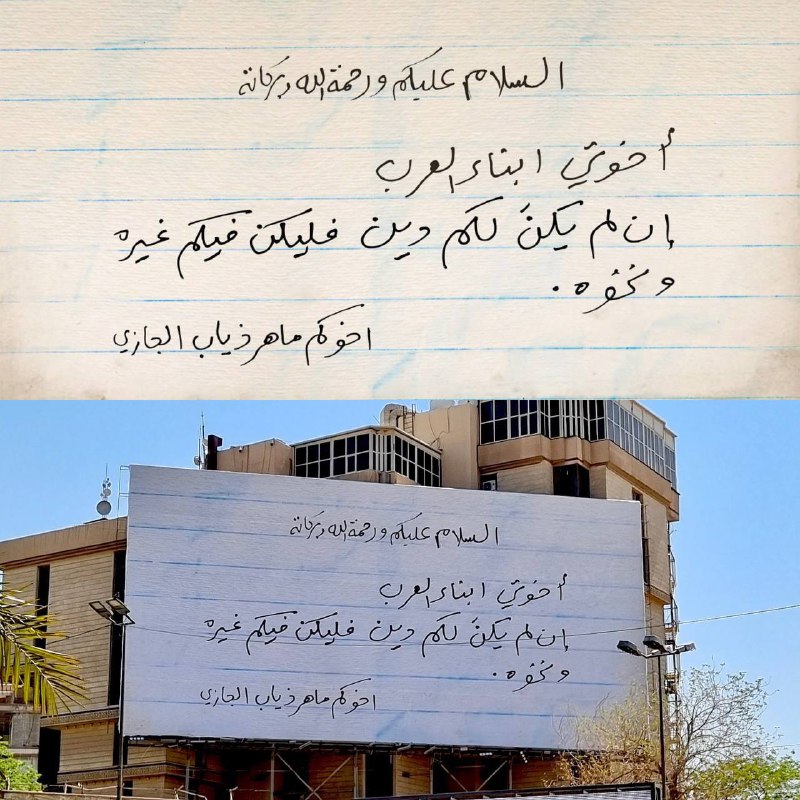 السلام عليكم ورحمة الله وبركاته
أخوتي ابناء العرب
إن لم يكن لكم دين فليكن فيكم غيره
ونخوه .
اخوكم ماهر ذياب الجازي
السلام عليكم ورحمة الله وبركاته
أخوتي ابناء العرب
إن لم يكن لكم دين فليكن فيكم غيره
ونخوه .
اخوكم ماهر ذياب الجازي